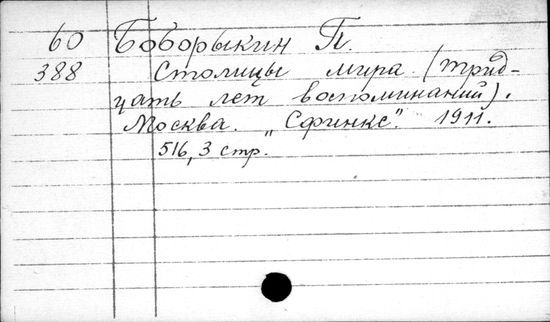 60 Боборыкин П.
388 Столицы мира (трид-
цать лет воспоминаний).
Москва. „Сфинкс". 1911.
516, 3 стр.